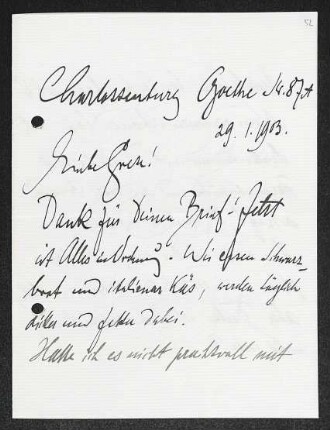 52
Charlottenburg Goethe Str. 87A
29.1.1903.
Liebe Grete!
Dank für Deinen Brief! Jetzt
ist Alles in Ordnung. Wir essen Schwarz-
brot und italienar Käs, werden täglich
dicker und fetter dabei.
Hatte ich es nicht prachtvoll mit